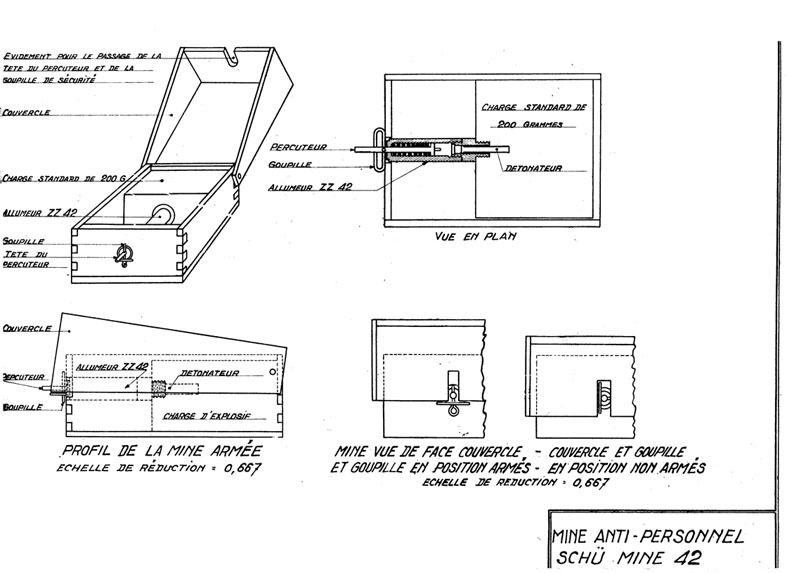 EVIDEMENT POUR LE PASSAGE DE LA
TETE DU PERCUTEUR ET DE LA
GOUPILLE DE SÉCURITÉ
COUVERCLE
CHARGE STANDARD DE 200 G.
ALLUMEUR ZZ 42
GOUPILLE
TETE DU
PERCUTEUR
CHARGE STANDARD DE
200 GRAMMES
PERCUTEUR
GOUPILLE
ALLUMEUR ZZ 42
DETONATEUR
VUE EN PLAN
COUVERCLE
ALLUMEUR ZZ42
PERCUTEUR
DETONATEUR
GOUPILLE
CHARGE D'EXPLOSIF
PROFIL DE LA MINE ARMÉE
ECHELLE DE RÉDUCTION = 0,667
MINE VUE DE FACE COUVERCLE, - COUVERCLE ET GOUPILLE
ET GOUPILLE EN POSITION ARMÉS - EN POSITION NON ARMÉS
ECHELLE DE REDUCTION = 0,667
MINE ANTI-PERSONNEL
SCHÜ MINE 42